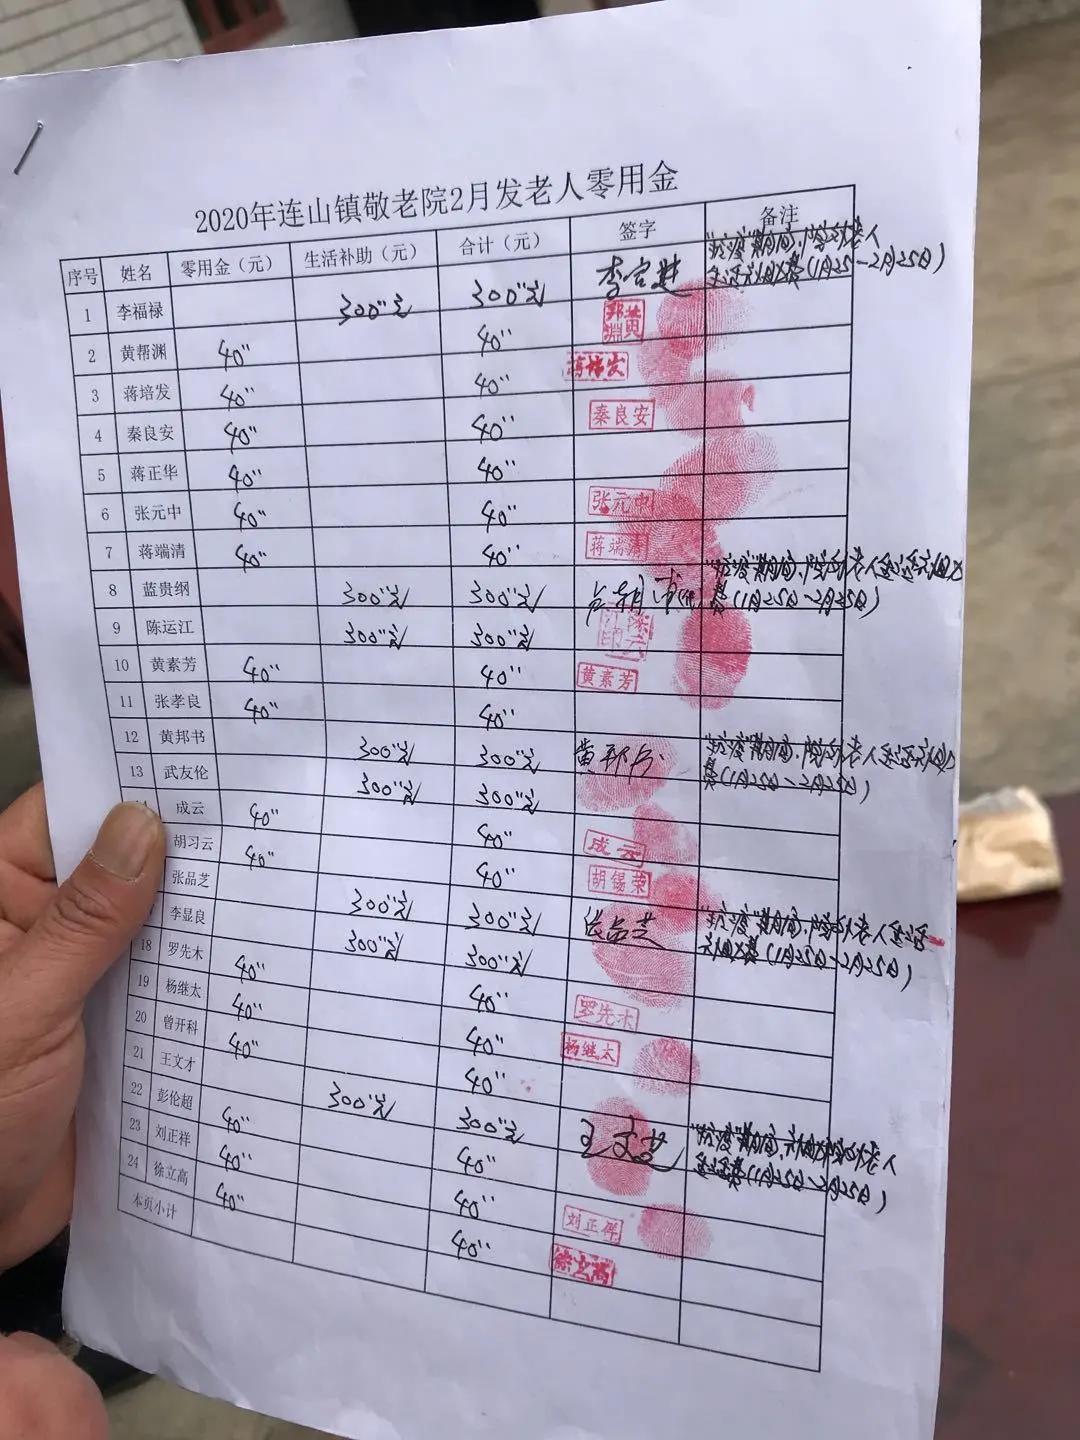 2020年连山镇敬老院2月发老人零用金
序号 姓名 零用金（元） 生活补助（元） 合计（元） 签字 备注
1 李福禄 300元 300元 "抗疫"期间,院外老人
生活补助费(1月25-2月25日)
2 黄帮渊 40 40 黄郭渊
3 蒋培发 40 40 蒋培发
4 秦良安 40 40 秦良安
5 蒋正华 40 40
6 张元中 40 40 张元中
7 蒋端清 40 40 蒋端清
8 蓝贵纲 300元 300元 "抗疫"期间,院外老人生活补助
费(1月25日-2月25日)
9 陈运江 300元 300元
10 黄素芳 40 40 黄素芳
11 张孝良 40 40
12 黄邦书 300元 300元 "抗疫"期间,院外老人生活补助
费(1月25日-2月25日)
13 武友伦 300元 300元
成云 40 40 成云
胡习云 40 40 胡锡荣
张品芝 300元 300元 张品芝 "抗疫"期间,院外老人生活
补助费(1月25日-2月25日)
李显良 300元 300元
18 罗先木 40 40 罗先木
19 杨继太 40 40 杨继太
20 曾开科 40 40
21 王文才 300元 300元 "抗疫"期间,补助院外老人
生活费(1月25日-2月25日)
22 彭伦超 40 40
23 刘正祥 40 40
24 徐立高 40 40
本页小计